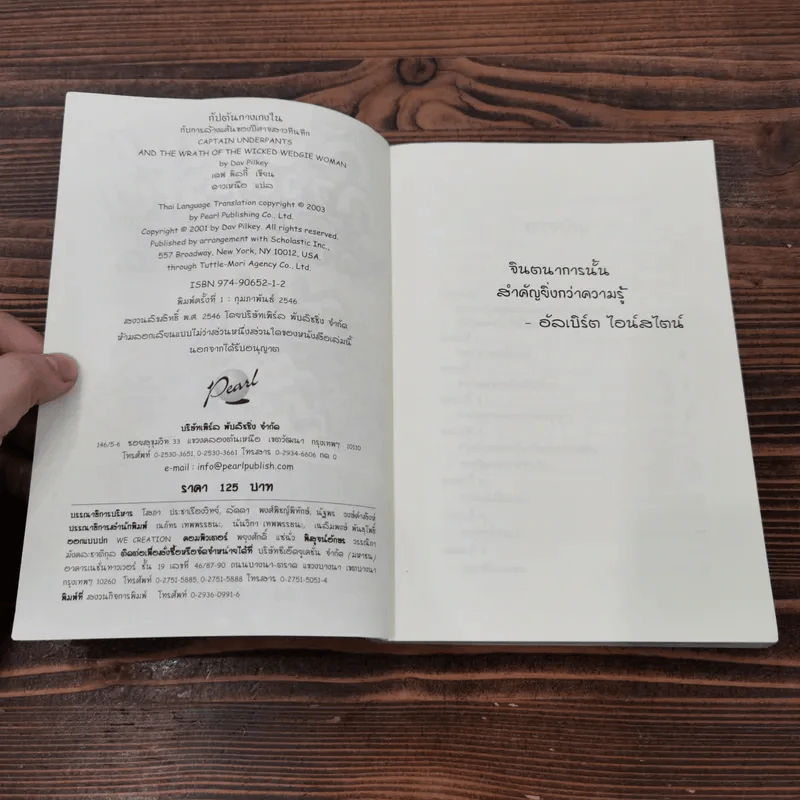 กัปตันกางเกงใน
กับการล้างแค้นของปีศาจสาวทึนทึก
CAPTAIN UNDERPANTS
AND THE WRATH OF THE WICKED WEDGIE WOMAN
by Dav Pilkey
เดฟ พิลกี้ เขียน
ดาวเหนือ แปล
Thai Language Translation copyright © 2003
by Pearl Publishing Co., Ltd.
Copyright © 2001 by Dav Pilkey. All rights reserved.
Published by arrangement with Scholastic Inc.,
557 Broadway, New York, NY 10012, USA
through Tuttle-Mori Agency Co., Ltd.
ISBN 974-90652-1-2
พิมพ์ครั้งที่ 1 : กุมภาพันธ์ 2546
สงวนลิขสิทธิ์ พ.ศ. 2546 โดยบริษัทเพิร์ล พับลิชชิ่ง จำกัด
ห้ามลอกเลียนแบบไม่ว่าส่วนหนึ่งส่วนใดของหนังสือเล่มนี้
นอกจากได้รับอนุญาต
Pearl
บริษัทเพิร์ล พับลิชชิ่ง จำกัด
146/5-6 ซอยสุขุมวิท 33 แขวงคลองตันเหนือ เขตวัฒนา กรุงเทพฯ 10110
โทรศัพท์ 0-2530-3651, 0-2530-3661 โทรสาร 0-2934-6606 กด 0
e-mail : info@pearlpublish.com
ราคา 125 บาท
บรรณาธิการบริหาร โสภา ประชาเรืองวิทย์, ลัดดา พงศ์พิชญ์พิทักษ์, ณัฐพร
บรรณาธิการสำนักพิมพ์ เนภัทร เทพพรรธนะ, นันวิภา เทพพรรธนะ, เฉลิมพงษ์ พันธุโพธิ์
ออกแบบปก WE CREATION คอมพิวเตอร์ พจงศักดิ์ แซ่นิ้ว พิสูจน์อักษร วรรณิภา
มังคละชาติกุล ติดต่อเพื่อสั่งซื้อหรือจัดจำหน่ายได้ที่ บริษัทซีเอ็ดยูเคชั่น จำกัด (มหาชน)
อาคารเนชั่นทาวเวอร์ ชั้น 19 เลขที่ 46/87-90 ถนนบางนา-ตราด แขวงบางนา เขตบางนา
กรุงเทพฯ 10260 โทรศัพท์ 0-2751-5885, 0-2751-5888 โทรสาร 0-2751-5051-4
พิมพ์ที่ สงวนกิจการพิมพ์ โทรศัพท์ 0-2936-0991-6
จินตนาการนั้น
สำคัญยิ่งกว่าความรู้
- อัลเบิร์ต ไอน์สไตน์